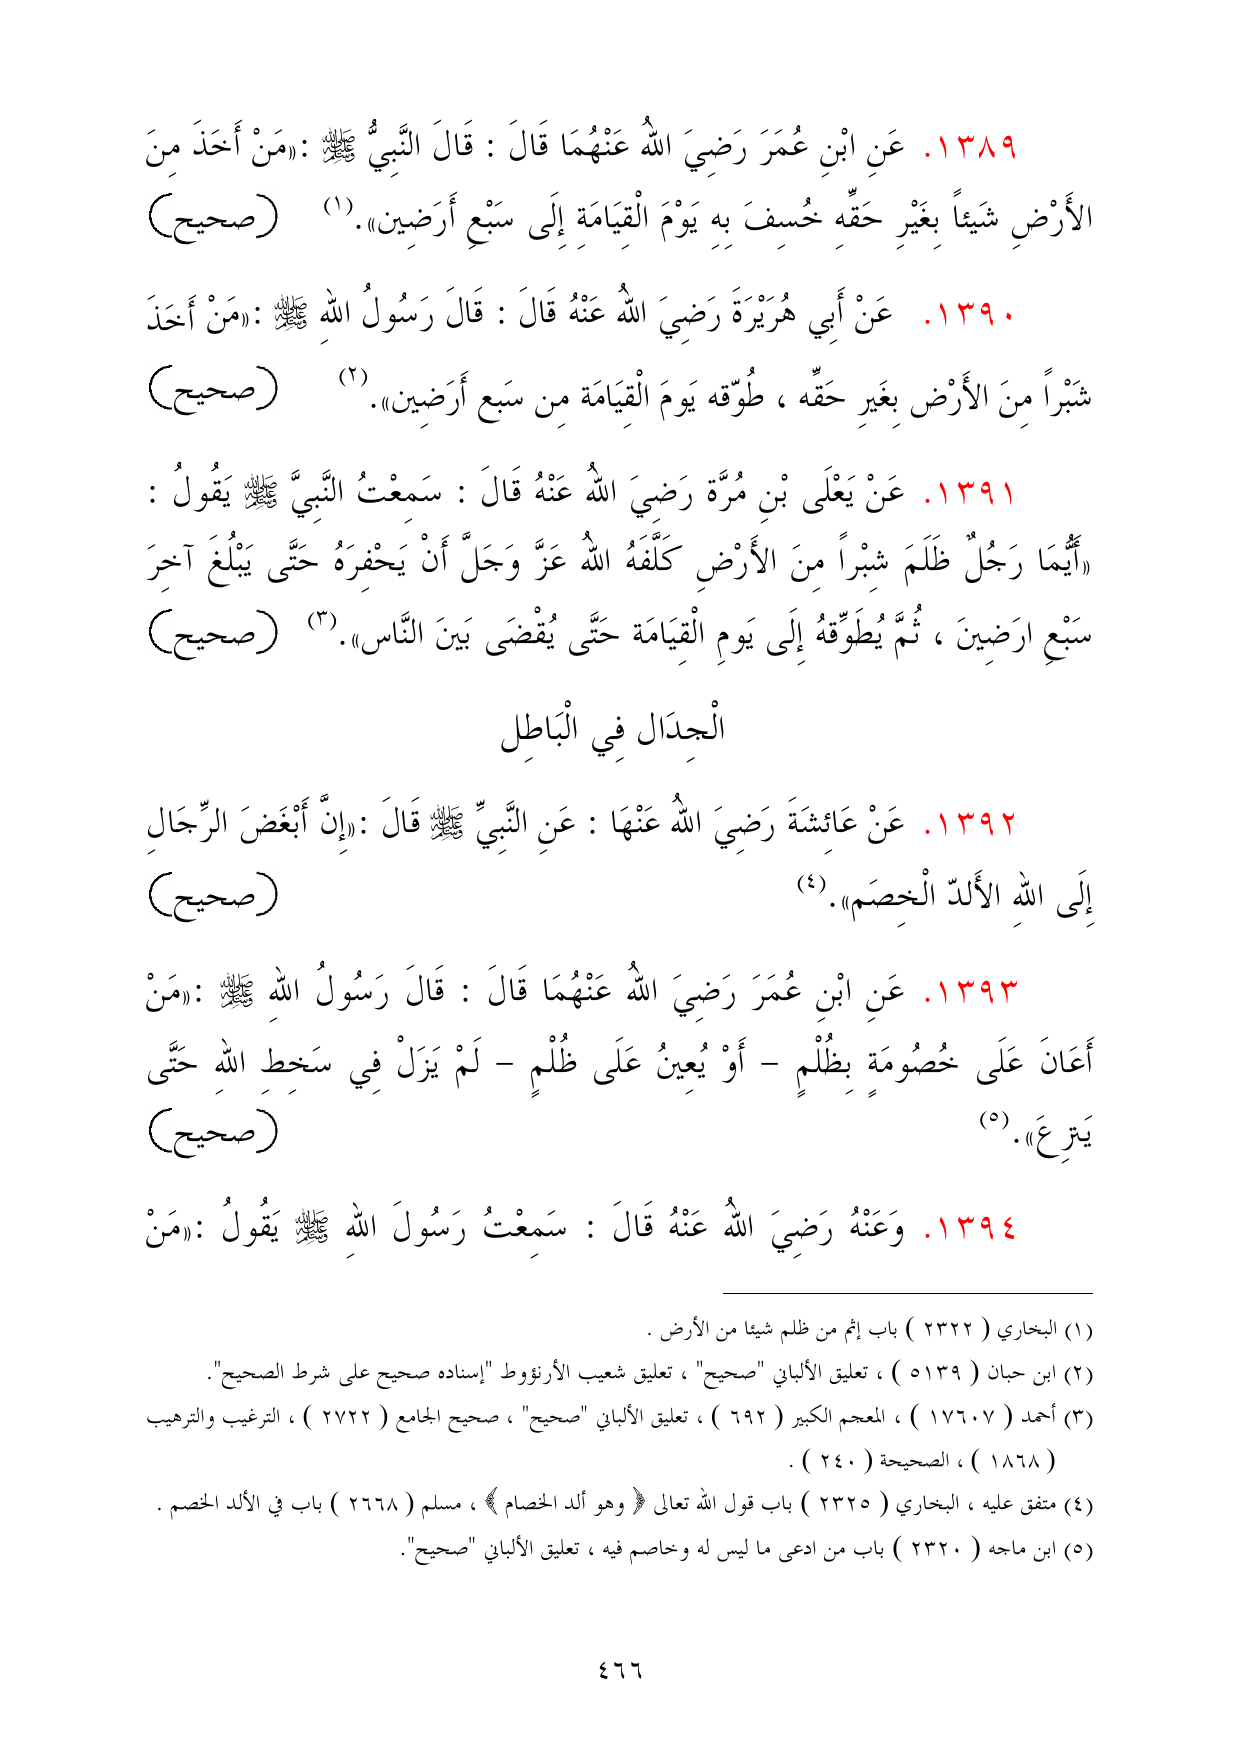 ١٣٨٩. عَنِ ابْنِ عُمَرَ رَضِيَ اللهُ عَنْهُمَا قَالَ : قَالَ النَّبِيُّ ﷺ :«مَنْ أَخَذَ مِنَ
الأَرْضِ شَيئاً بِغَيْرِ حَقِّهِ خُسِفَ بِهِ يَوْمَ الْقِيَامَةِ إِلَى سَبْعِ أَرَضِين».(١) (صحيح)
١٣٩٠. عَنْ أَبِي هُرَيْرَةَ رَضِيَ اللهُ عَنْهُ قَالَ : قَالَ رَسُولُ اللهِ ﷺ :«مَنْ أَخَذَ
شَبْراً مِنَ الأَرْض بِغَيرِ حَقِّه ، طُوّقه يَومَ الْقِيَامَة مِن سَبع أَرَضِين».(٢) (صحيح)
١٣٩١. عَنْ يَعْلَى بْنِ مُرَّة رَضِيَ اللهُ عَنْهُ قَالَ : سَمِعْتُ النَّبِيَّ ﷺ يَقُولُ :
«أَيُّمَا رَجُلٌ ظَلَمَ شِبْراً مِنَ الأَرْضِ كَلَّفَهُ اللهُ عَزَّ وَجَلَّ أَنْ يَحْفِرَهُ حَتَّى يَبْلُغَ آخِرَ
سَبْعِ ارَضِينَ ، ثُمَّ يُطَوِّقهُ إِلَى يَومِ الْقِيَامَة حَتَّى يُقْضَى بَينَ النَّاس».(٣) (صحيح)
الْجِدَال فِي الْبَاطِل
١٣٩٢. عَنْ عَائِشَةَ رَضِيَ اللهُ عَنْهَا : عَنِ النَّبِيِّ ﷺ قَالَ :«إِنَّ أَبْغَضَ الرِّجَالِ
إِلَى اللهِ الأَلدّ الْخِصَم».(٤) (صحيح)
١٣٩٣. عَنِ ابْنِ عُمَرَ رَضِيَ اللهُ عَنْهُمَا قَالَ : قَالَ رَسُولُ اللهِ ﷺ :«مَنْ
أَعَانَ عَلَى خُصُومَةٍ بِظُلْمٍ – أَوْ يُعِينُ عَلَى ظُلْمٍ – لَمْ يَزَلْ فِي سَخِطِ اللهِ حَتَّى
يَنزِعَ».(٥) (صحيح)
١٣٩٤. وَعَنْهُ رَضِيَ اللهُ عَنْهُ قَالَ : سَمِعْتُ رَسُولَ اللهِ ﷺ يَقُولُ :«مَنْ
(١) البخاري ( ٢٣٢٢ ) باب إثم من ظلم شيئا من الأرض .
(٢) ابن حبان ( ٥١٣٩ ) ، تعليق الألباني "صحيح" ، تعليق شعيب الأرنؤوط "إسناده صحيح على شرط الصحيح".
(٣) أحمد ( ١٧٦٠٧ ) ، المعجم الكبير ( ٦٩٢ ) ، تعليق الألباني "صحيح" ، صحيح الجامع ( ٢٧٢٢ ) ، الترغيب والترهيب
( ١٨٦٨ ) ، الصحيحة ( ٢٤٠ ) .
(٤) متفق عليه ، البخاري ( ٢٣٢٥ ) باب قول الله تعالى ﴿ وهو ألد الخصام ﴾ ، مسلم ( ٢٦٦٨ ) باب في الألد الخصم .
(٥) ابن ماجه ( ٢٣٢٠ ) باب من ادعى ما ليس له وخاصم فيه ، تعليق الألباني "صحيح".
٤٦٦